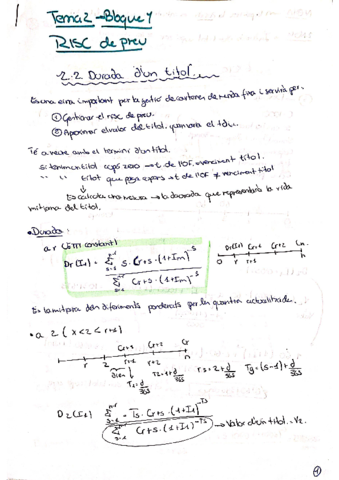 Tema 2 → Bloque 1
RISC de preu
2.2 Durada d'un títol.
Es una eina important per la gestió de carteres de renda fixa i servirà per:
① Gestionar el risc de preu.
② Aproximar el valor del títol, quan varia el tdm.
Té a veure amb el termini d'un títol.
Si tenim un títol cupó zero → t. de l'IOF. venciment títol.
" " títol que paga cupons → t. de l'IOF ≠ venciment títol
↓
Es calcula una mesura → la durada que representarà la vida
mitjana del títol.
• Durada:
a r (ETTI constant)
Dr(I1) = Σ s · Cr+s · (1+Im)^-s
Σ Cr+s · (1+Im)^-s
Dr(I1) Cr+1 Cr+2 Cn
0 r r+1 n
Es la mitjana dels diferiments ponderats per les quanties actualitzades.
• a z (r<z<r+1)
Cr+1 Cr+2 Cn
r z r+1 r+2 n
T1 = d/365 T2 = 1 + d/365 Ts = (s-1) + d/365
Dz(I1) Σ Ts · Cr+s · (1+I1)^-Ts
Σ Cr+s · (1+I1)^-Ts → Valor d'un títol → Vz.
①